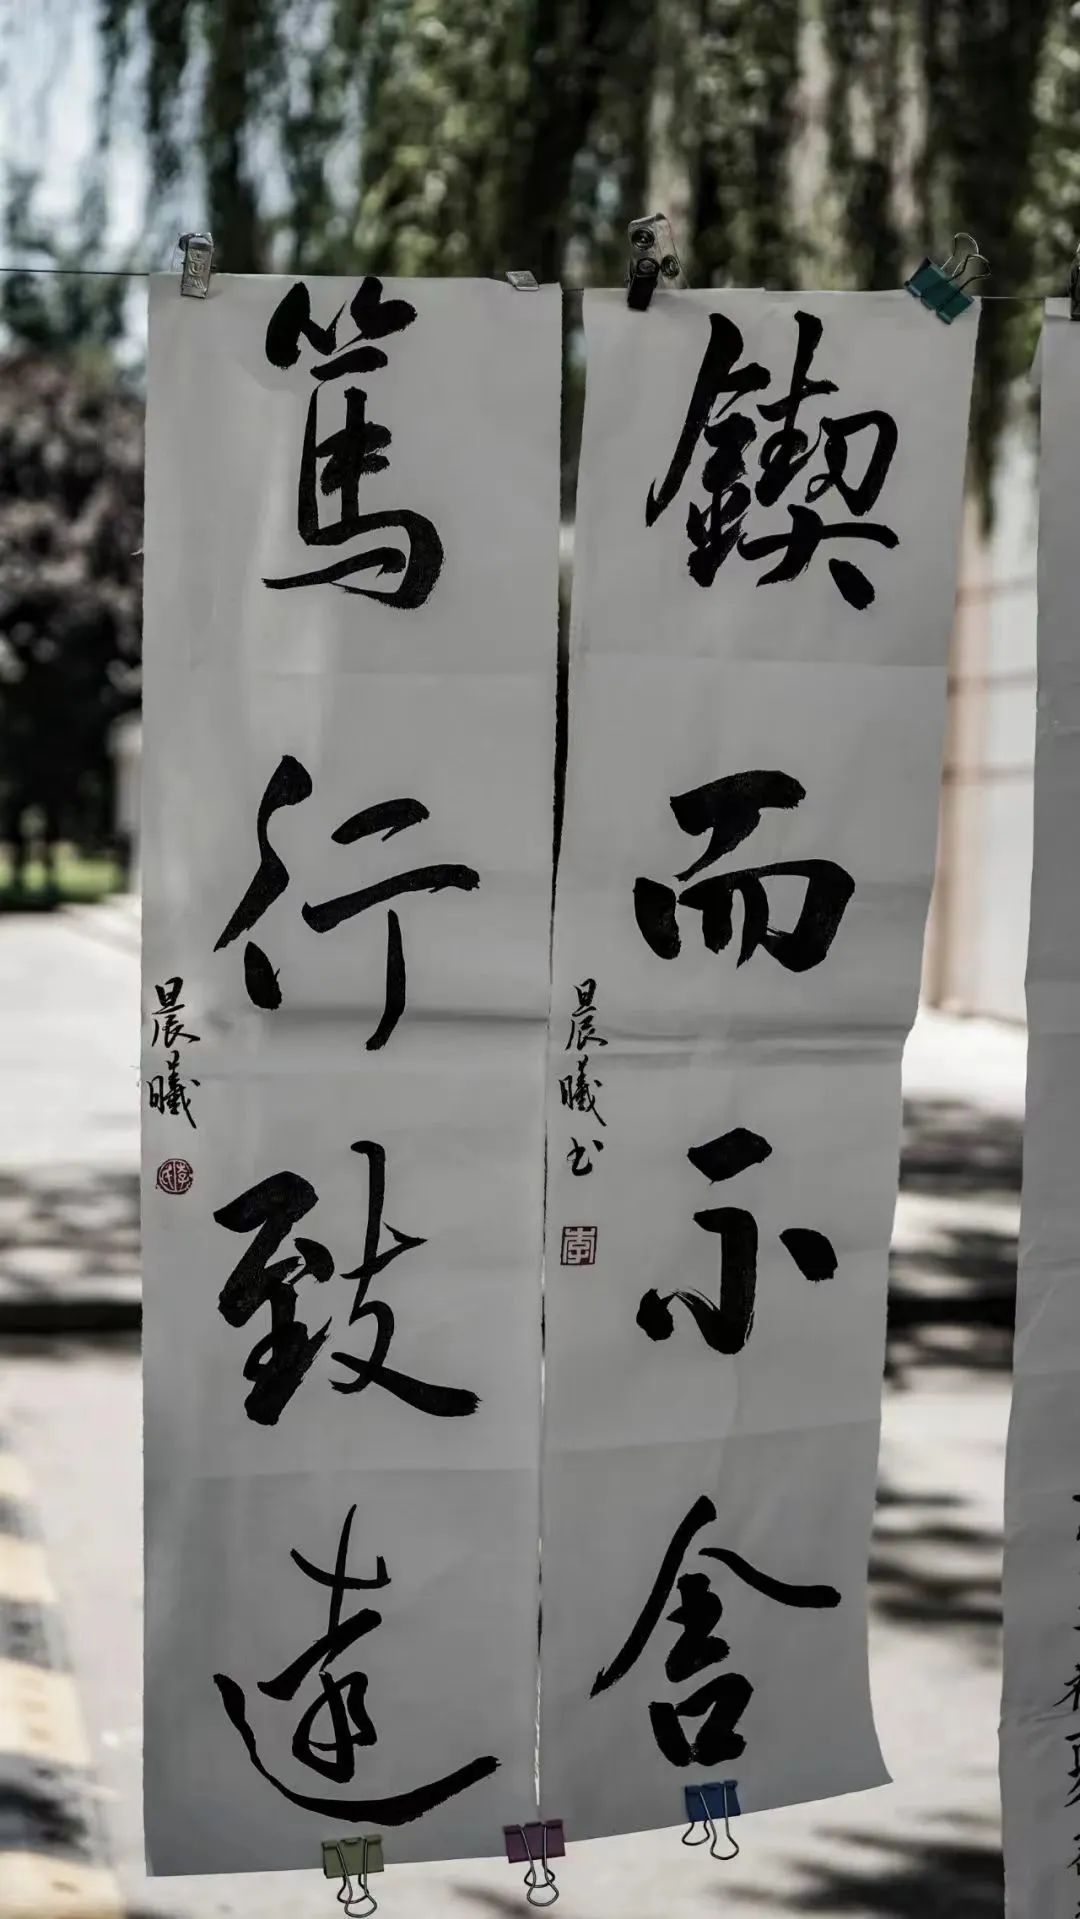 锲而不舍
晨曦书
李
笃行致远
晨曦
李氏